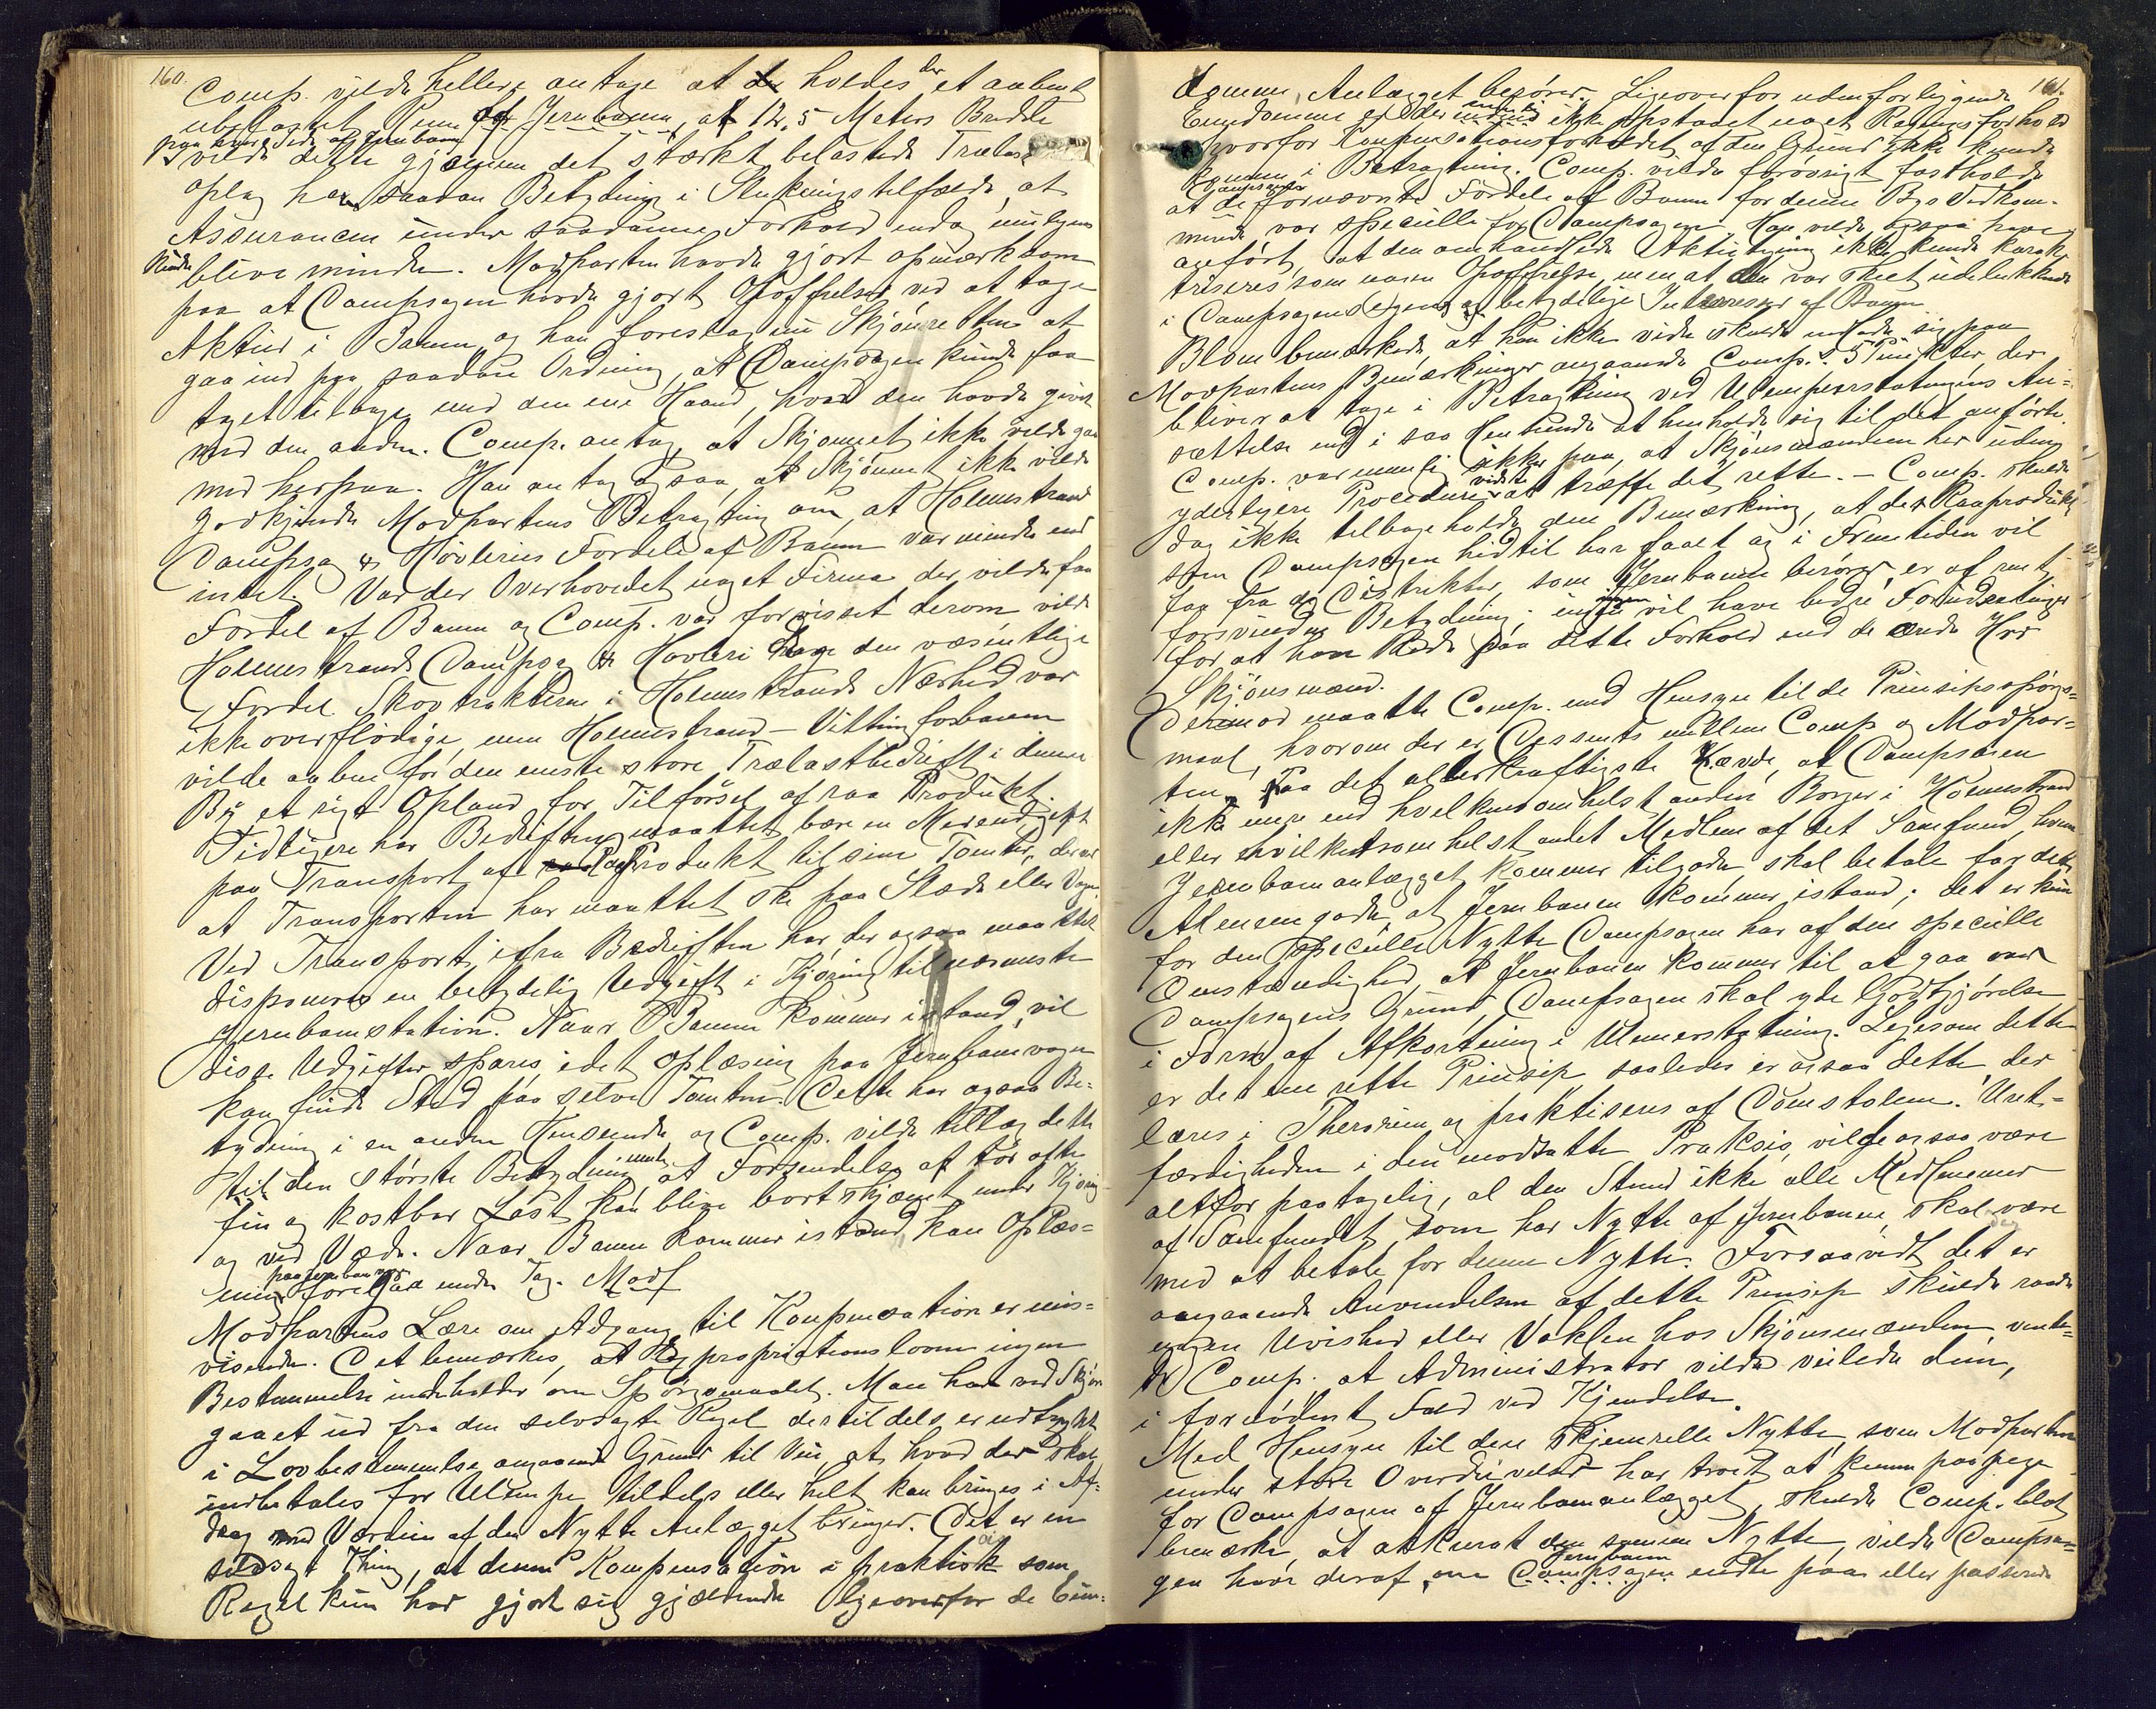 160.
Comp. vilde hellere antage at holdes der et aabent
ubelastet Rum af Jernbanen, af 12,5 Meters Bredde
paa hver Side af Jernbanen
vilde dette gjennem det stærkt belastede Trælast
oplag have saadan Betydning i Slukningstilfælde, at
Assurancen under saadanne Forhold endog muligens
kunde blive mindre. Modparten havde gjort opmærksom
paa at Dampsagen havde gjort Opoffrelser ved at tage
Aktier i Banen og han foreslog nu Skjønsretten at
gaa ind paa saadan Ordning, at Dampsagen kunde faa
taget tilbage med den ene Haand, hvad den havde givet
med den anden. Comp. antog, at Skjønnet ikke vilde gaa
med herpaa. Han antog ogsaa, at Skjønnet ikke vilde
godkjende Modpartens Betragtning om, at Holmestrand
Dampsag & Høvleries Fordele af Banen var mindre end
intet. Var der Overhovedet noget Firma, der vilde faa
Fordel af Banen og Comp. var forvisset derom vilde
Holmestrands Dampsag & Høvleri have den væsentlige
Fordel. Skovtrakterne i Holmestrands Nærhed var
ikke overflødige, men Holmestrand-Vittingfosbanen
vilde aabne for den eneste store Trælastbedrift i denne
By et rigt Opland for Tilførsel af raa Produkt.
Tidligere har Bedriften maattet bære en Merudgift
paa Transport af Raaprodukt til sine Tomter, derved
at Transporten har maattet ske paa Slæde eller Vogn
Ved Transport ifra Bedriften har der ogsaa maattet
disponeres en betydelig Udgift i Kjøring til nærmeste
Jernbanestation. Naar Banen kommer istand, vil
disse Udgifter spares, idet Oplæsning paa Jernbanevogn
kan finde Sted paa selve Tomten. Dette har ogsaa Be=
tydning i en anden Henseende, og Comp. vilde tillæg dette
til den største Betydning, at Forsendelse af tør ofte
fin og kostbar Last kan blive bortskjæmt under Kjøring
og ved Væde. Naar Banen kommer istand, kan Oplæs=
ning paa Jernbanevogn foregaa under Tag. Modf
Modpartens Lære om Adgang til Kompensation er mis=
visende. Det bemærkes, at Expropriationsloven ingen
Bestemmelse indeholder om Spørgsmaalet. Man har ved Skjøn
gaaet ud fra den selvsagte Regel der tildels er udtrykt
i Lovbestemmelse angaaende Grund til Vei, at hvad der skal
indbetales for Ulempe tildels eller helt kan bringes i Af=
drag med Værdien af den Nytte Anlægget bringer. Det er en
selvsagt Thing, at denne Kompensation i praktisk som
Regel kun har gjort sig gjældende ligeoverfor de Eien=
161.
domme, Anlægget berører. Ligeoverfor udenforliggende
Eiendomme er der nemlig ikke Opstaaet noget Retsforhold
hvorfor Kompensationsforholdet af den Grund ikke kunde
komme i Betragtning. Comp. vilde forøvrigt fastholde
at de fornævnte Fordele af Banen for denne Bys Vedkom=
mende var specielle for Dampsagen. Han vilde ogsaa have
anført, at den omhandlede Aktietegning ikke kunde karak=
triseres som nogen Opoffrelse, men at den var skeet udelukkende
i Dampsagens egen og betydelige Interesser af Banen
Blom bemærkede, at han ikke vilde skulde indlade sig paa
Modpartens Bemærkninger angaaende Comp.s 5 Punkter, der
bliver at tage i Betragtning ved Ulempeerstatningens An=
sættelse end i saa Henseende at henholde sig til det anførte.
Comp. var nemlig sikker paa, at Skjønsmændene her uden
yderligere Procedure vidste at træffe det rette. – Comp. skulde
dog ikke tilbageholde den Bemærkning, at det Raaprodukt
som Dampsagen hidtil har faaet og i Fremtiden vil
faa fra de Distrikter, som Jernbanen berører, er af rent
forsvindende Betydning; ingen vil have bedre Forudsætninger
for at have Rede paa dette Forhold end de ærede Hrr
Skjønsmænd.
Derimod maatte Comp. med Hensyn til de Prinsipsspørgs=
maal, hvorom der er Dessents mellem Comp og Modpar=
ten paa det allerkraftigste hævde, at Dampsagen
ikke mere end hvilkensomhelst anden Borger i Holmestrand
eller hvilketsomhelst andet Medlem af det Samfund, hvem
Jernbaneanlægget kommer tilgode skal betale for dette
Almengode, at Jernbanen kommer istand; det er kun
for den specielle Nytte Dampsagen har af den specielle
Omstændighed, at Jernbanen kommer til at gaa over
Dampsagens Grund, Dampsagen skal yde Godtgjørelse
i Form af Afkortning i Ulemeerstatning. Ligesom dette
er det ene rette Prinsip saaledes er ogsaa dette, der
læres i Theorien og praktiseres af Domstolene. Uret=
færdigheden i den modsatte Praksis vilde ogsaa være
altfor paatagelig, al den Stund ikke alle Medlemmer
af Samfundet, som har Nytte af Jernbanen, skal være
med at betale for denne Nytte. Forsaavidt det er
angaaende Anvendelsen af dette Prinsip skulde raade
nogen Uvished eller Vaklen hos Skjønsmændene, vente=
de Comp. at Administrator vilde veilede dem,
i fornødent Fald ved Kjendelse.
Med Hensyn til den generelle Nytte, som Modparten
under store Overdrivelser har troet at kunne paapege
for Dampsagen af Jernbaneanlægget, skulde Comp. blot
bemærke, at akkurat den samme Nytte, vilde Dampsa=
gen have deraf, om Jernbanen endte paa eller passerede